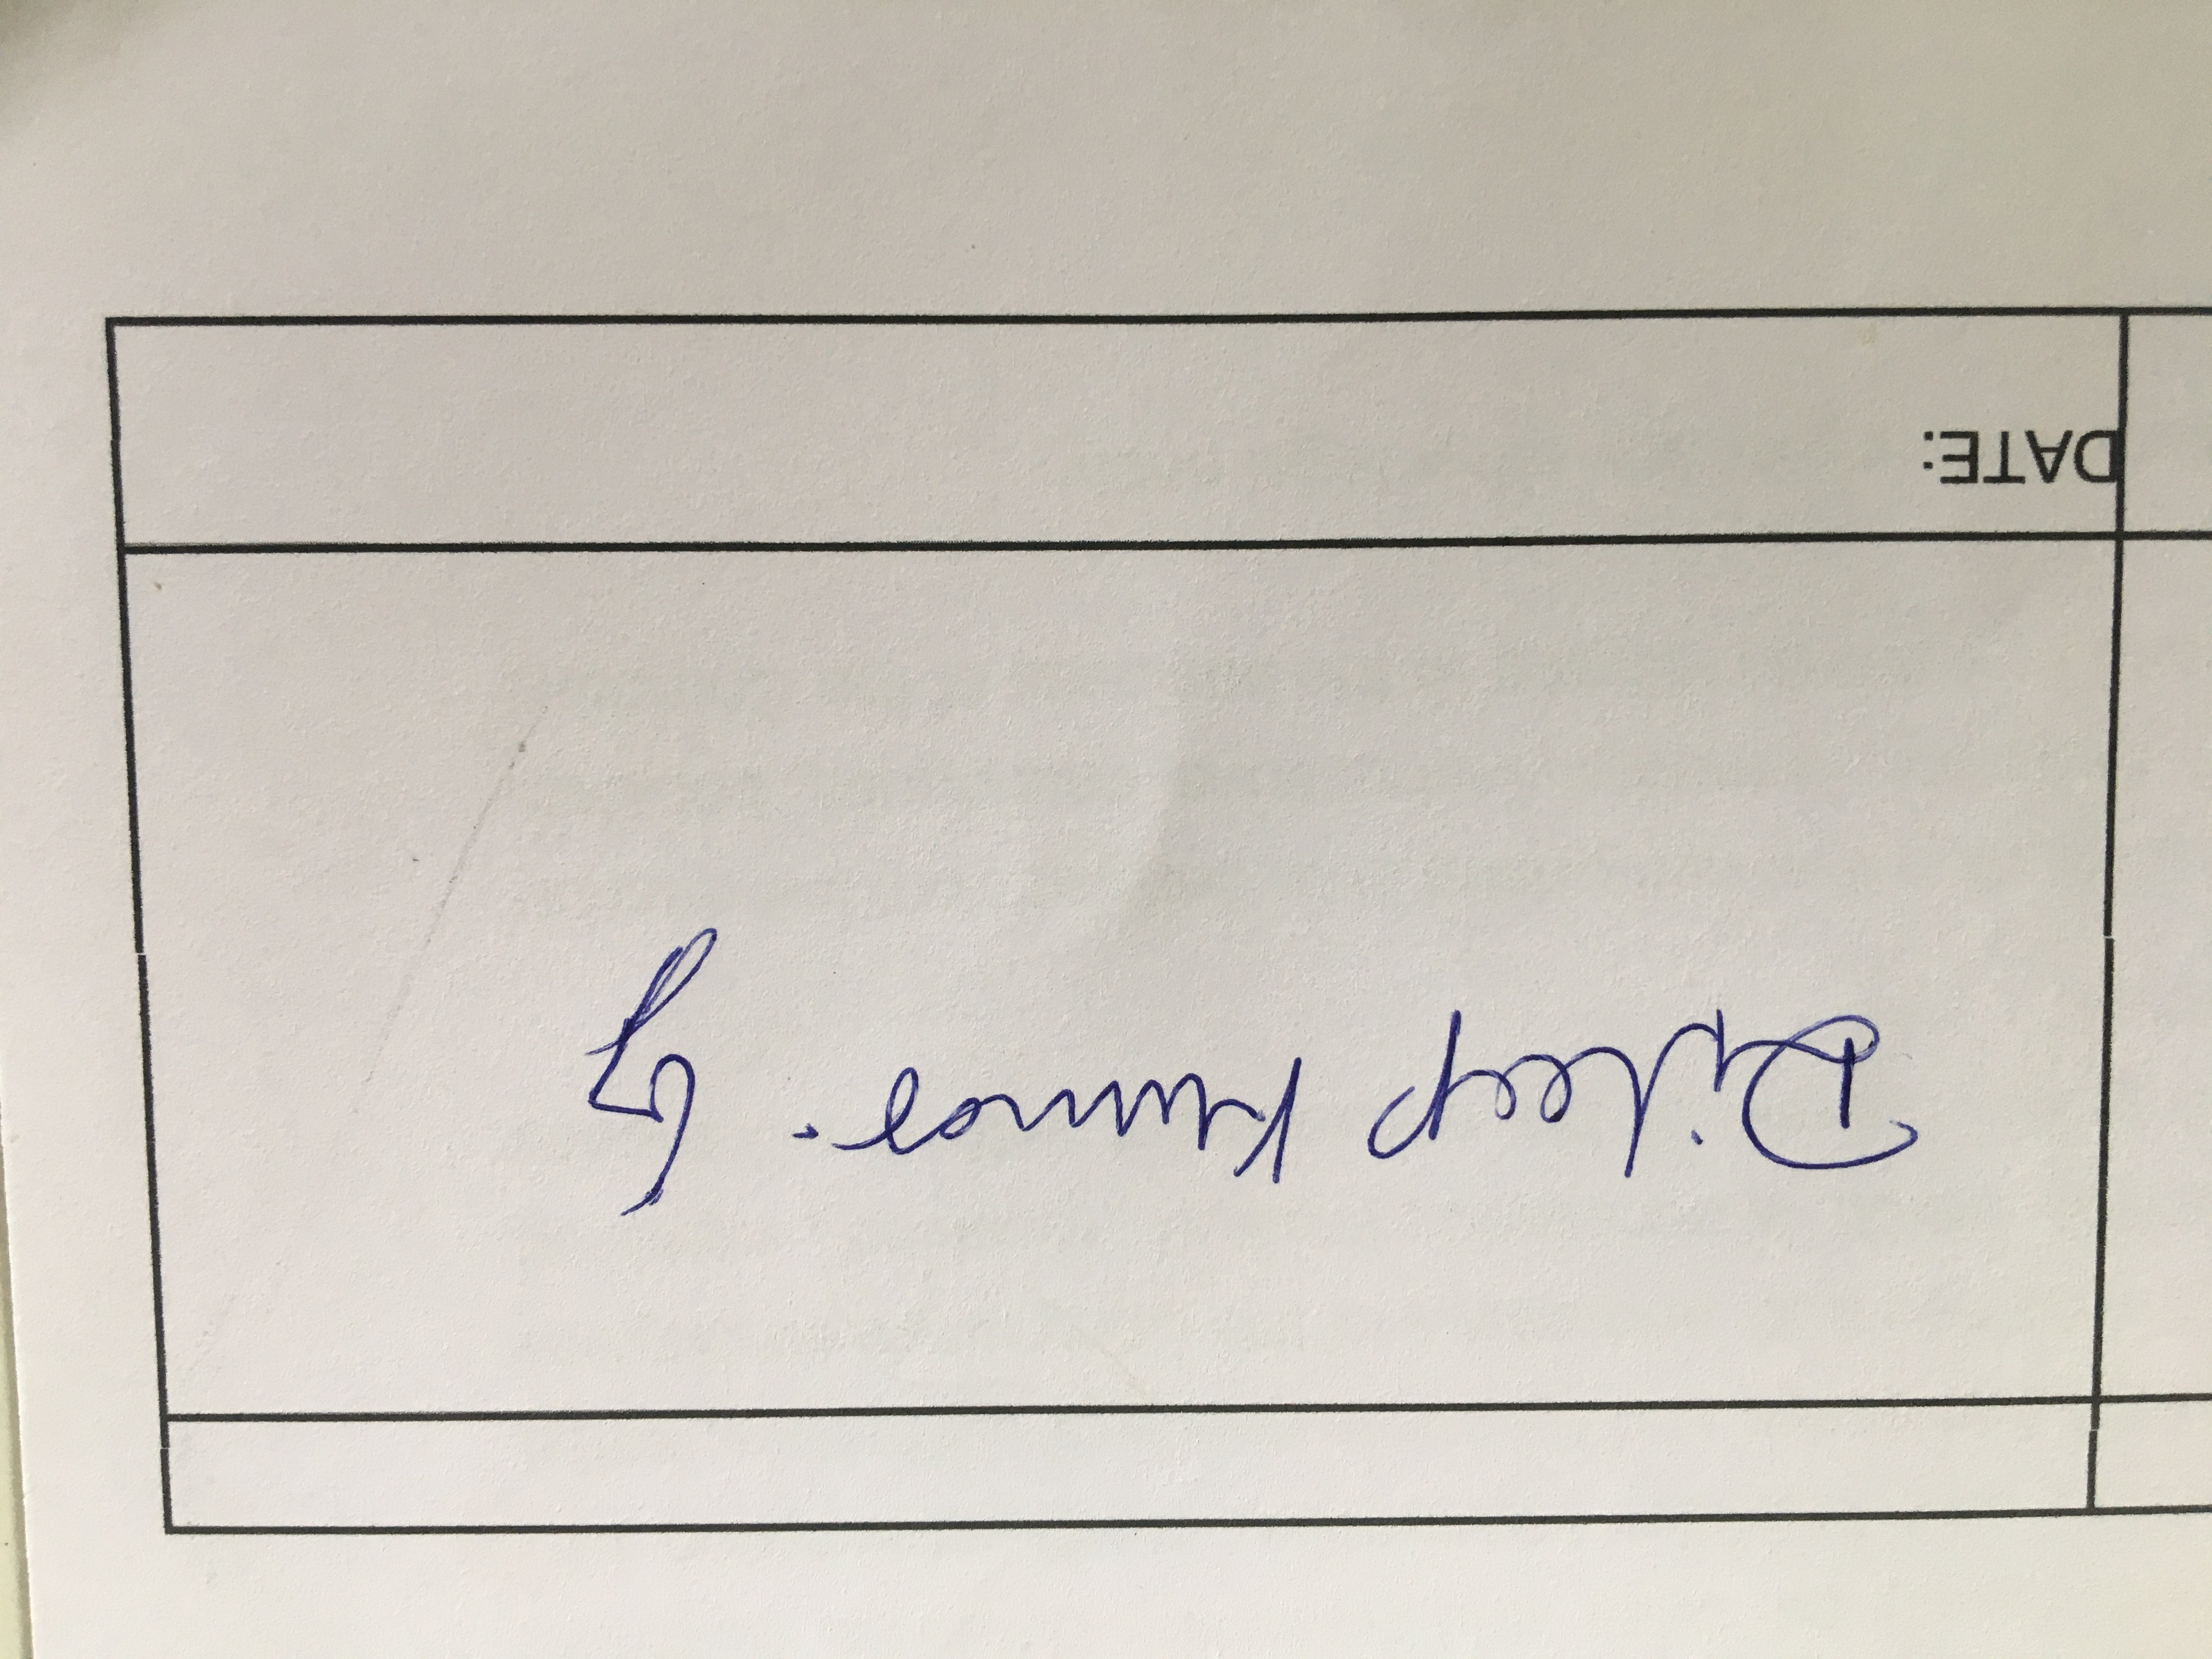 Dileep Kumar. G
DATE: